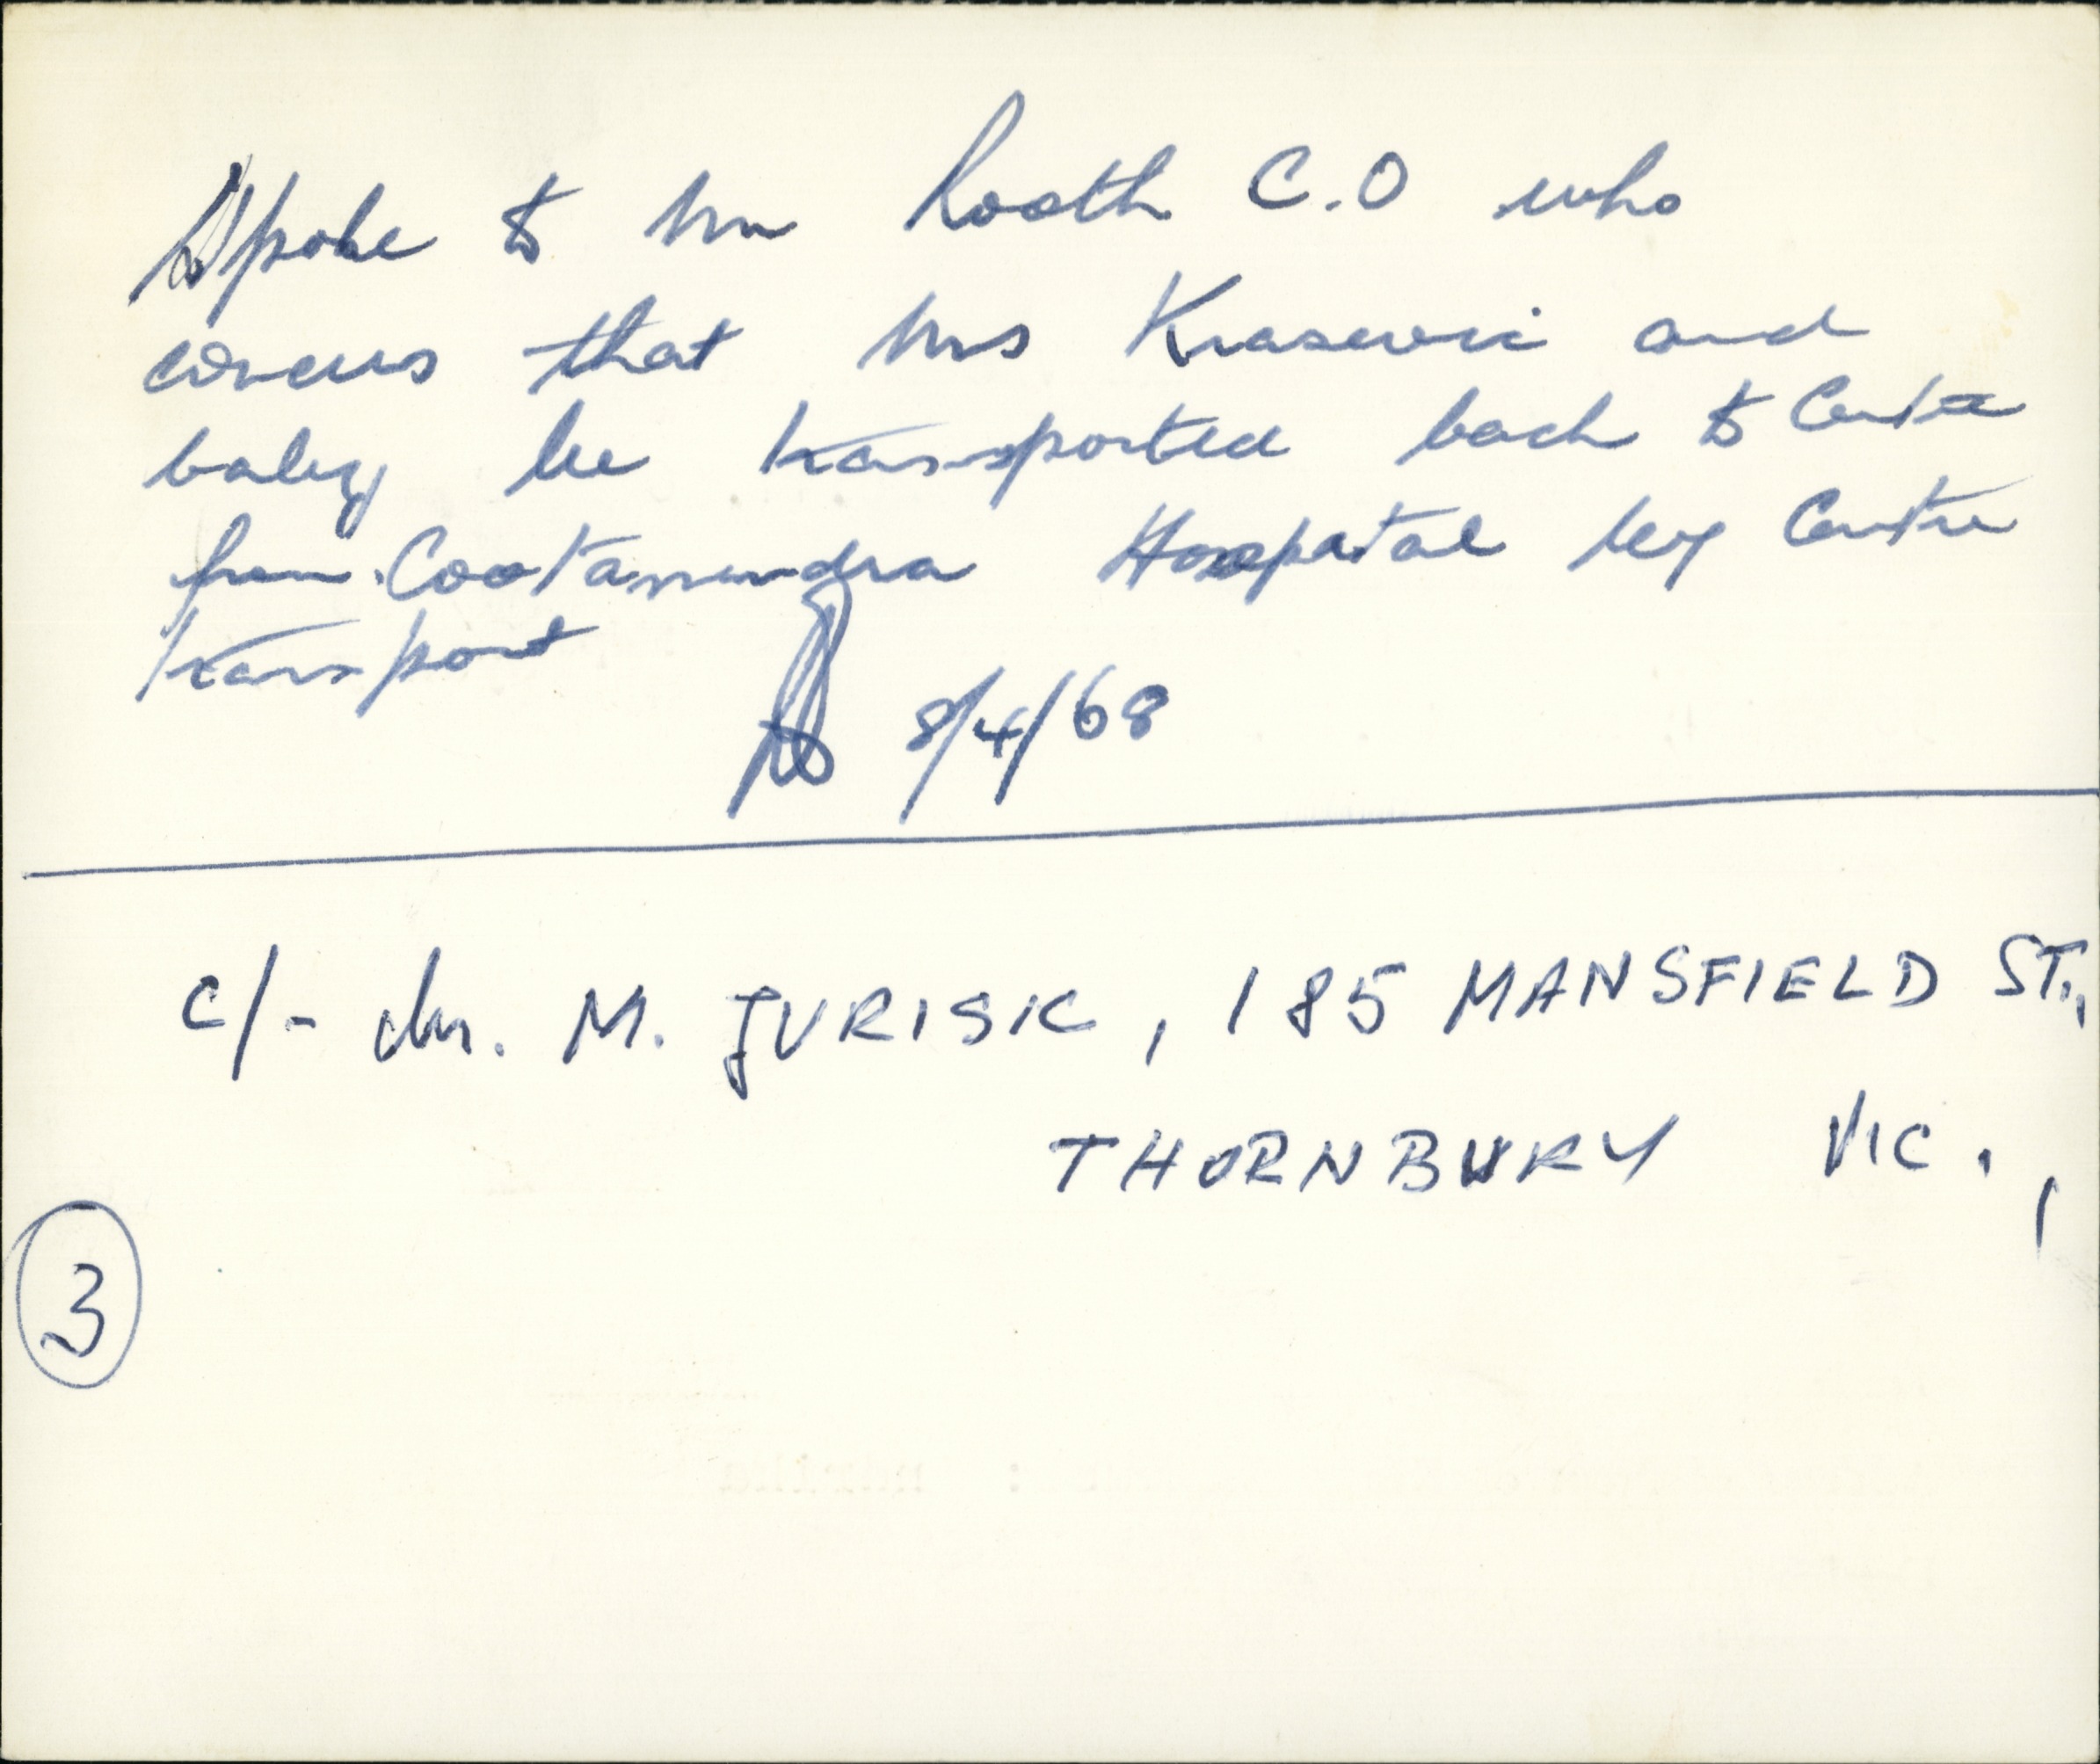 Spoke to Mr Rooth C.O who
concurs that Mrs Krasevic and
baby be transported back to Centre
from Cootamundra Hospital by Centre
transport
8/4/68
C/- Mr. M. JURISIC, 185 MANSFIELD ST.,
THORNBURY VIC.,
3